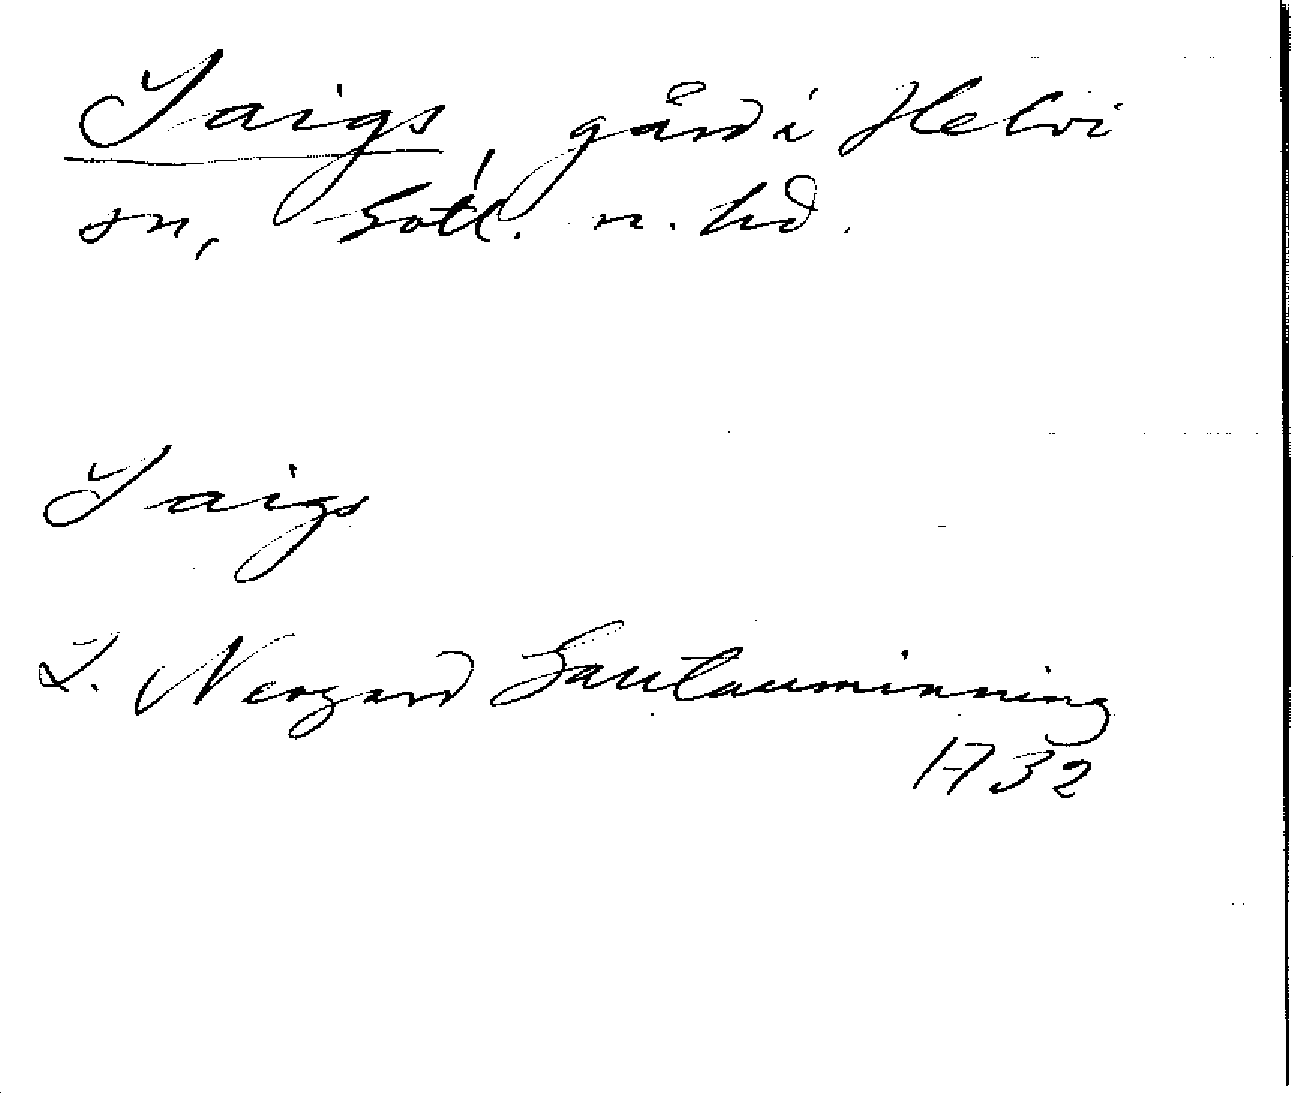 Saigs, gård i Helvi
sn, Gotl. n. hd.
Saigs
L. Neogard Gautauminning
1732